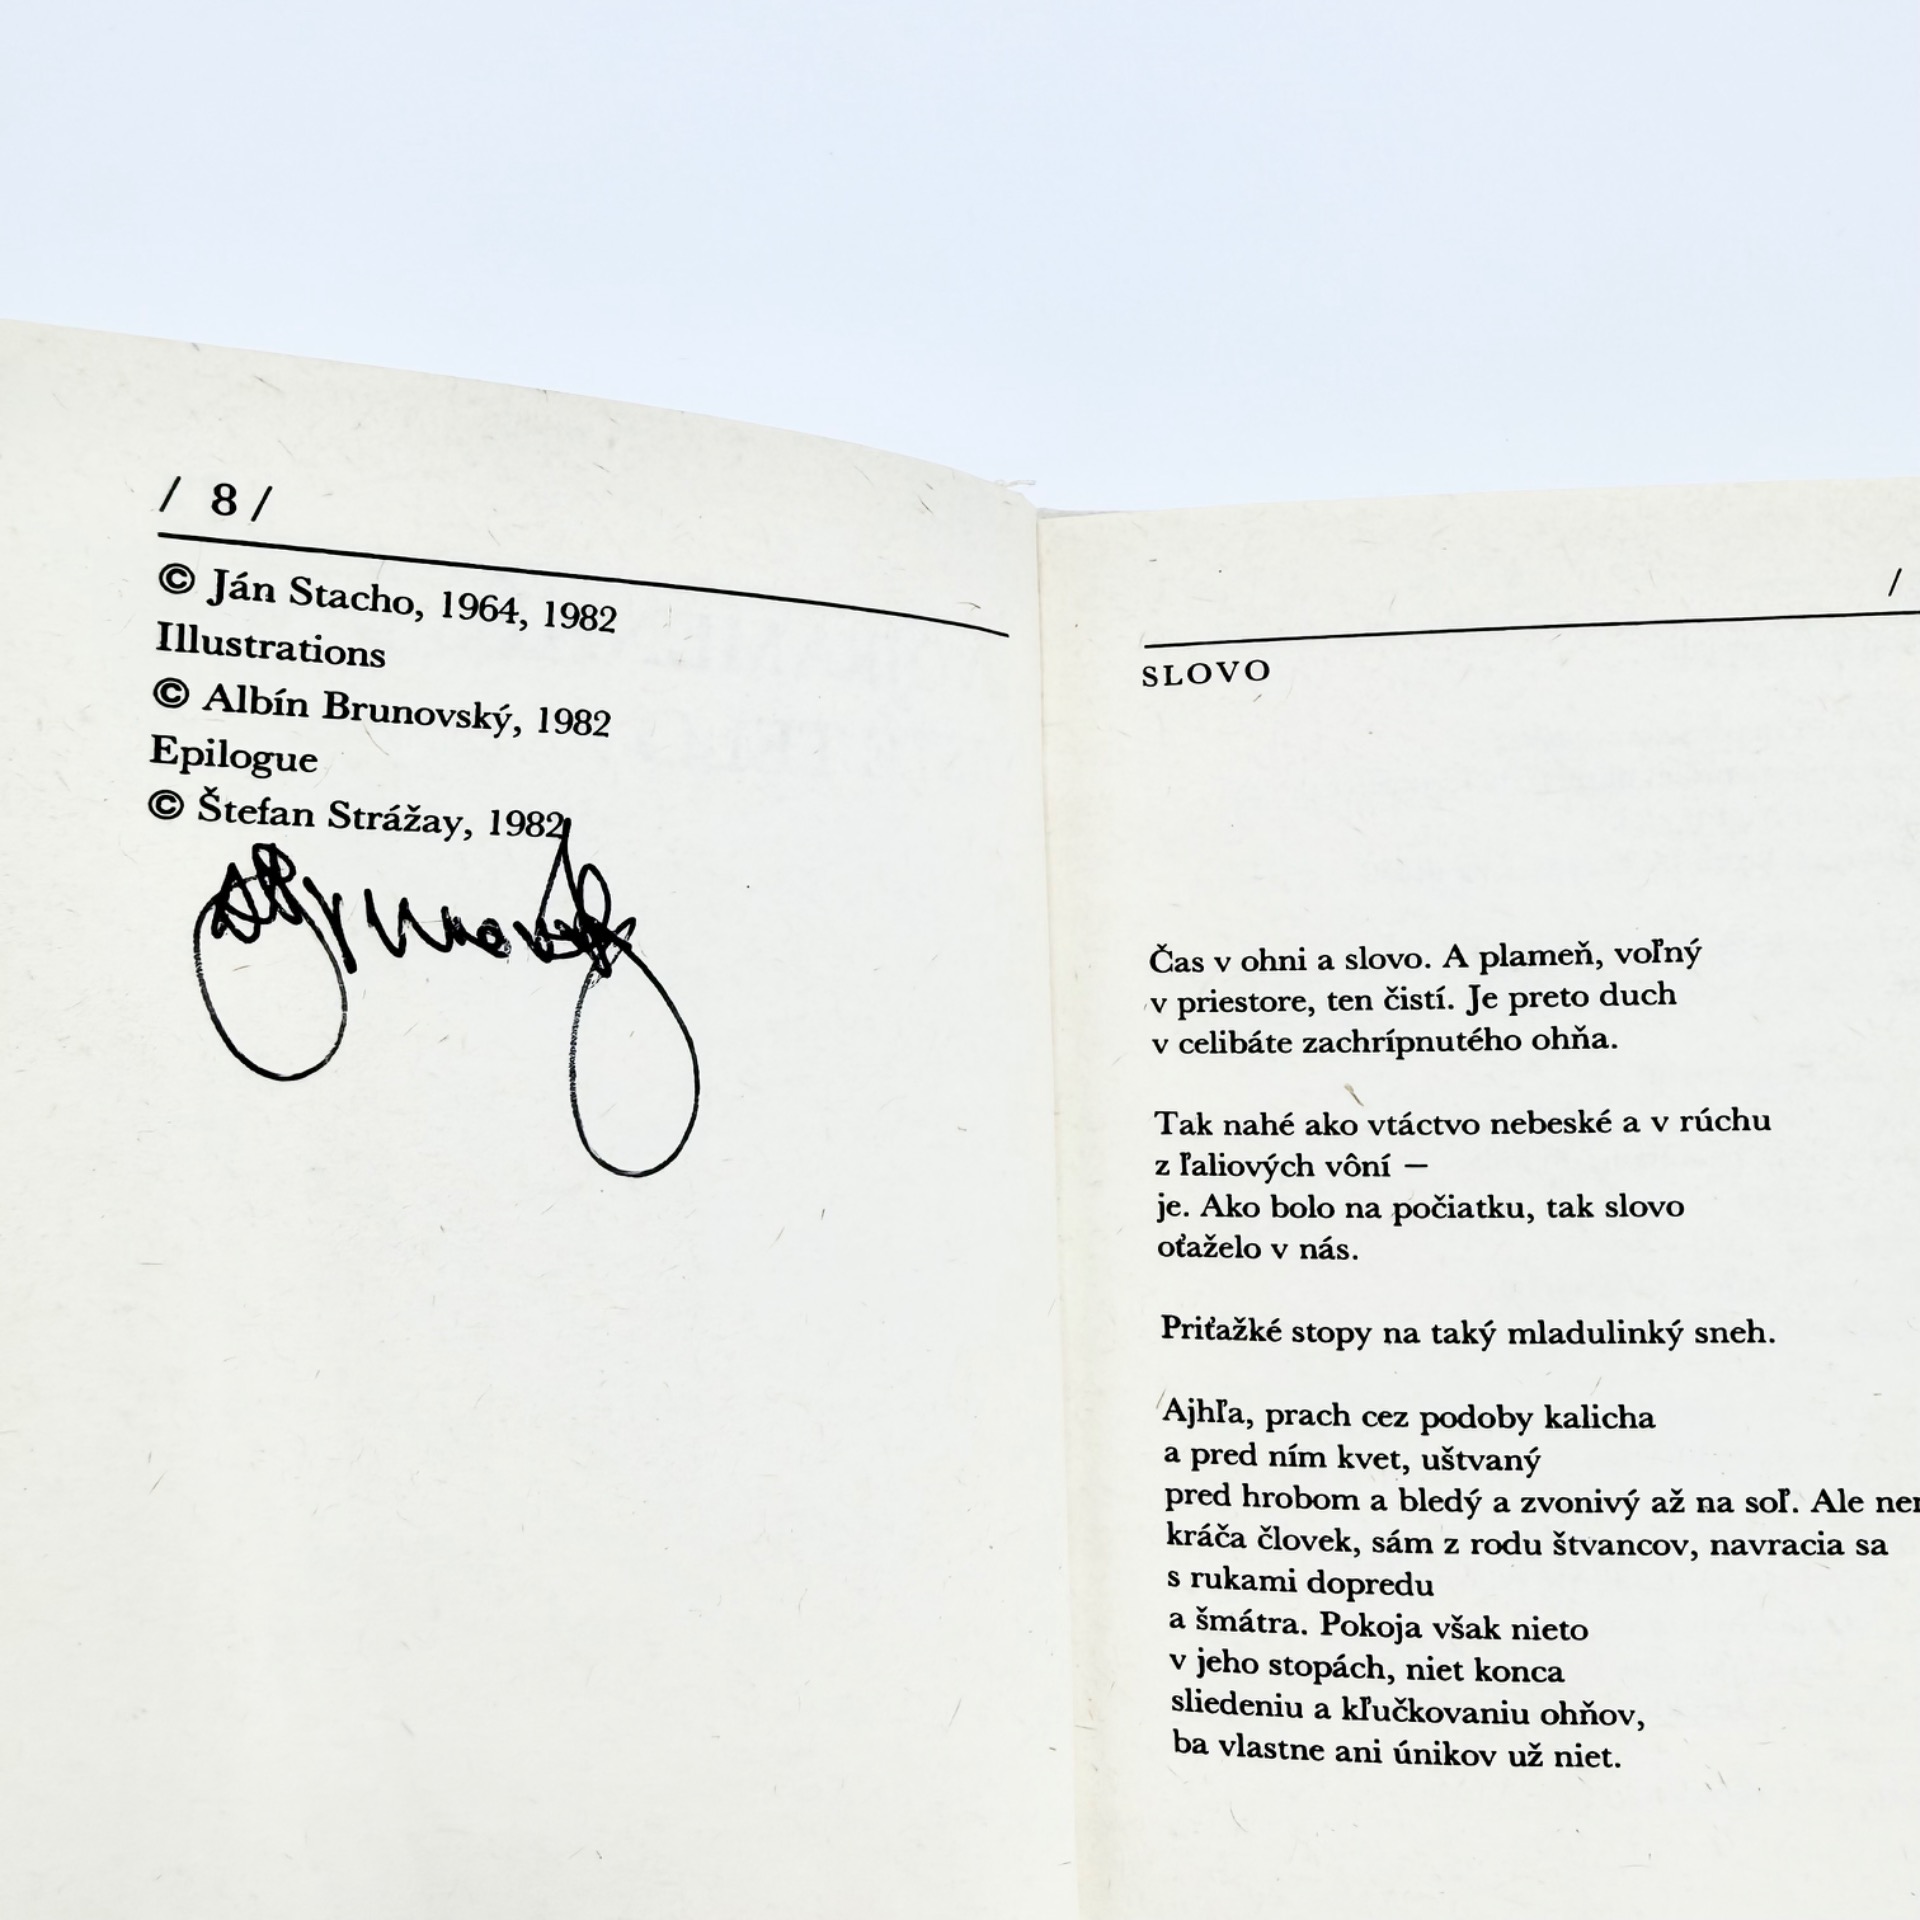 / 8 /
© Ján Stacho, 1964, 1982
Illustrations
© Albín Brunovský, 1982
Epilogue
© Štefan Strážay, 1982
/
SLOVO
Čas v ohni a slovo. A plameň, voľný
v priestore, ten čistí. Je preto duch
v celibáte zachrípnutého ohňa.
Tak nahé ako vtáctvo nebeské a v rúchu
z ľaliových vôní —
je. Ako bolo na počiatku, tak slovo
oťaželo v nás.
Priťažké stopy na taký mladulinký sneh.
Ajhľa, prach cez podoby kalicha
a pred ním kvet, uštvaný
pred hrobom a bledý a zvonivý až na soľ. Ale
kráča človek, sám z rodu štvancov, navracia sa
s rukami dopredu
a šmátra. Pokoja však nieto
v jeho stopách, niet konca
sliedeniu a kľučkovaniu ohňov,
ba vlastne ani únikov už niet.